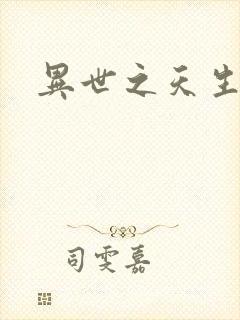 異世之天生
司雯嘉